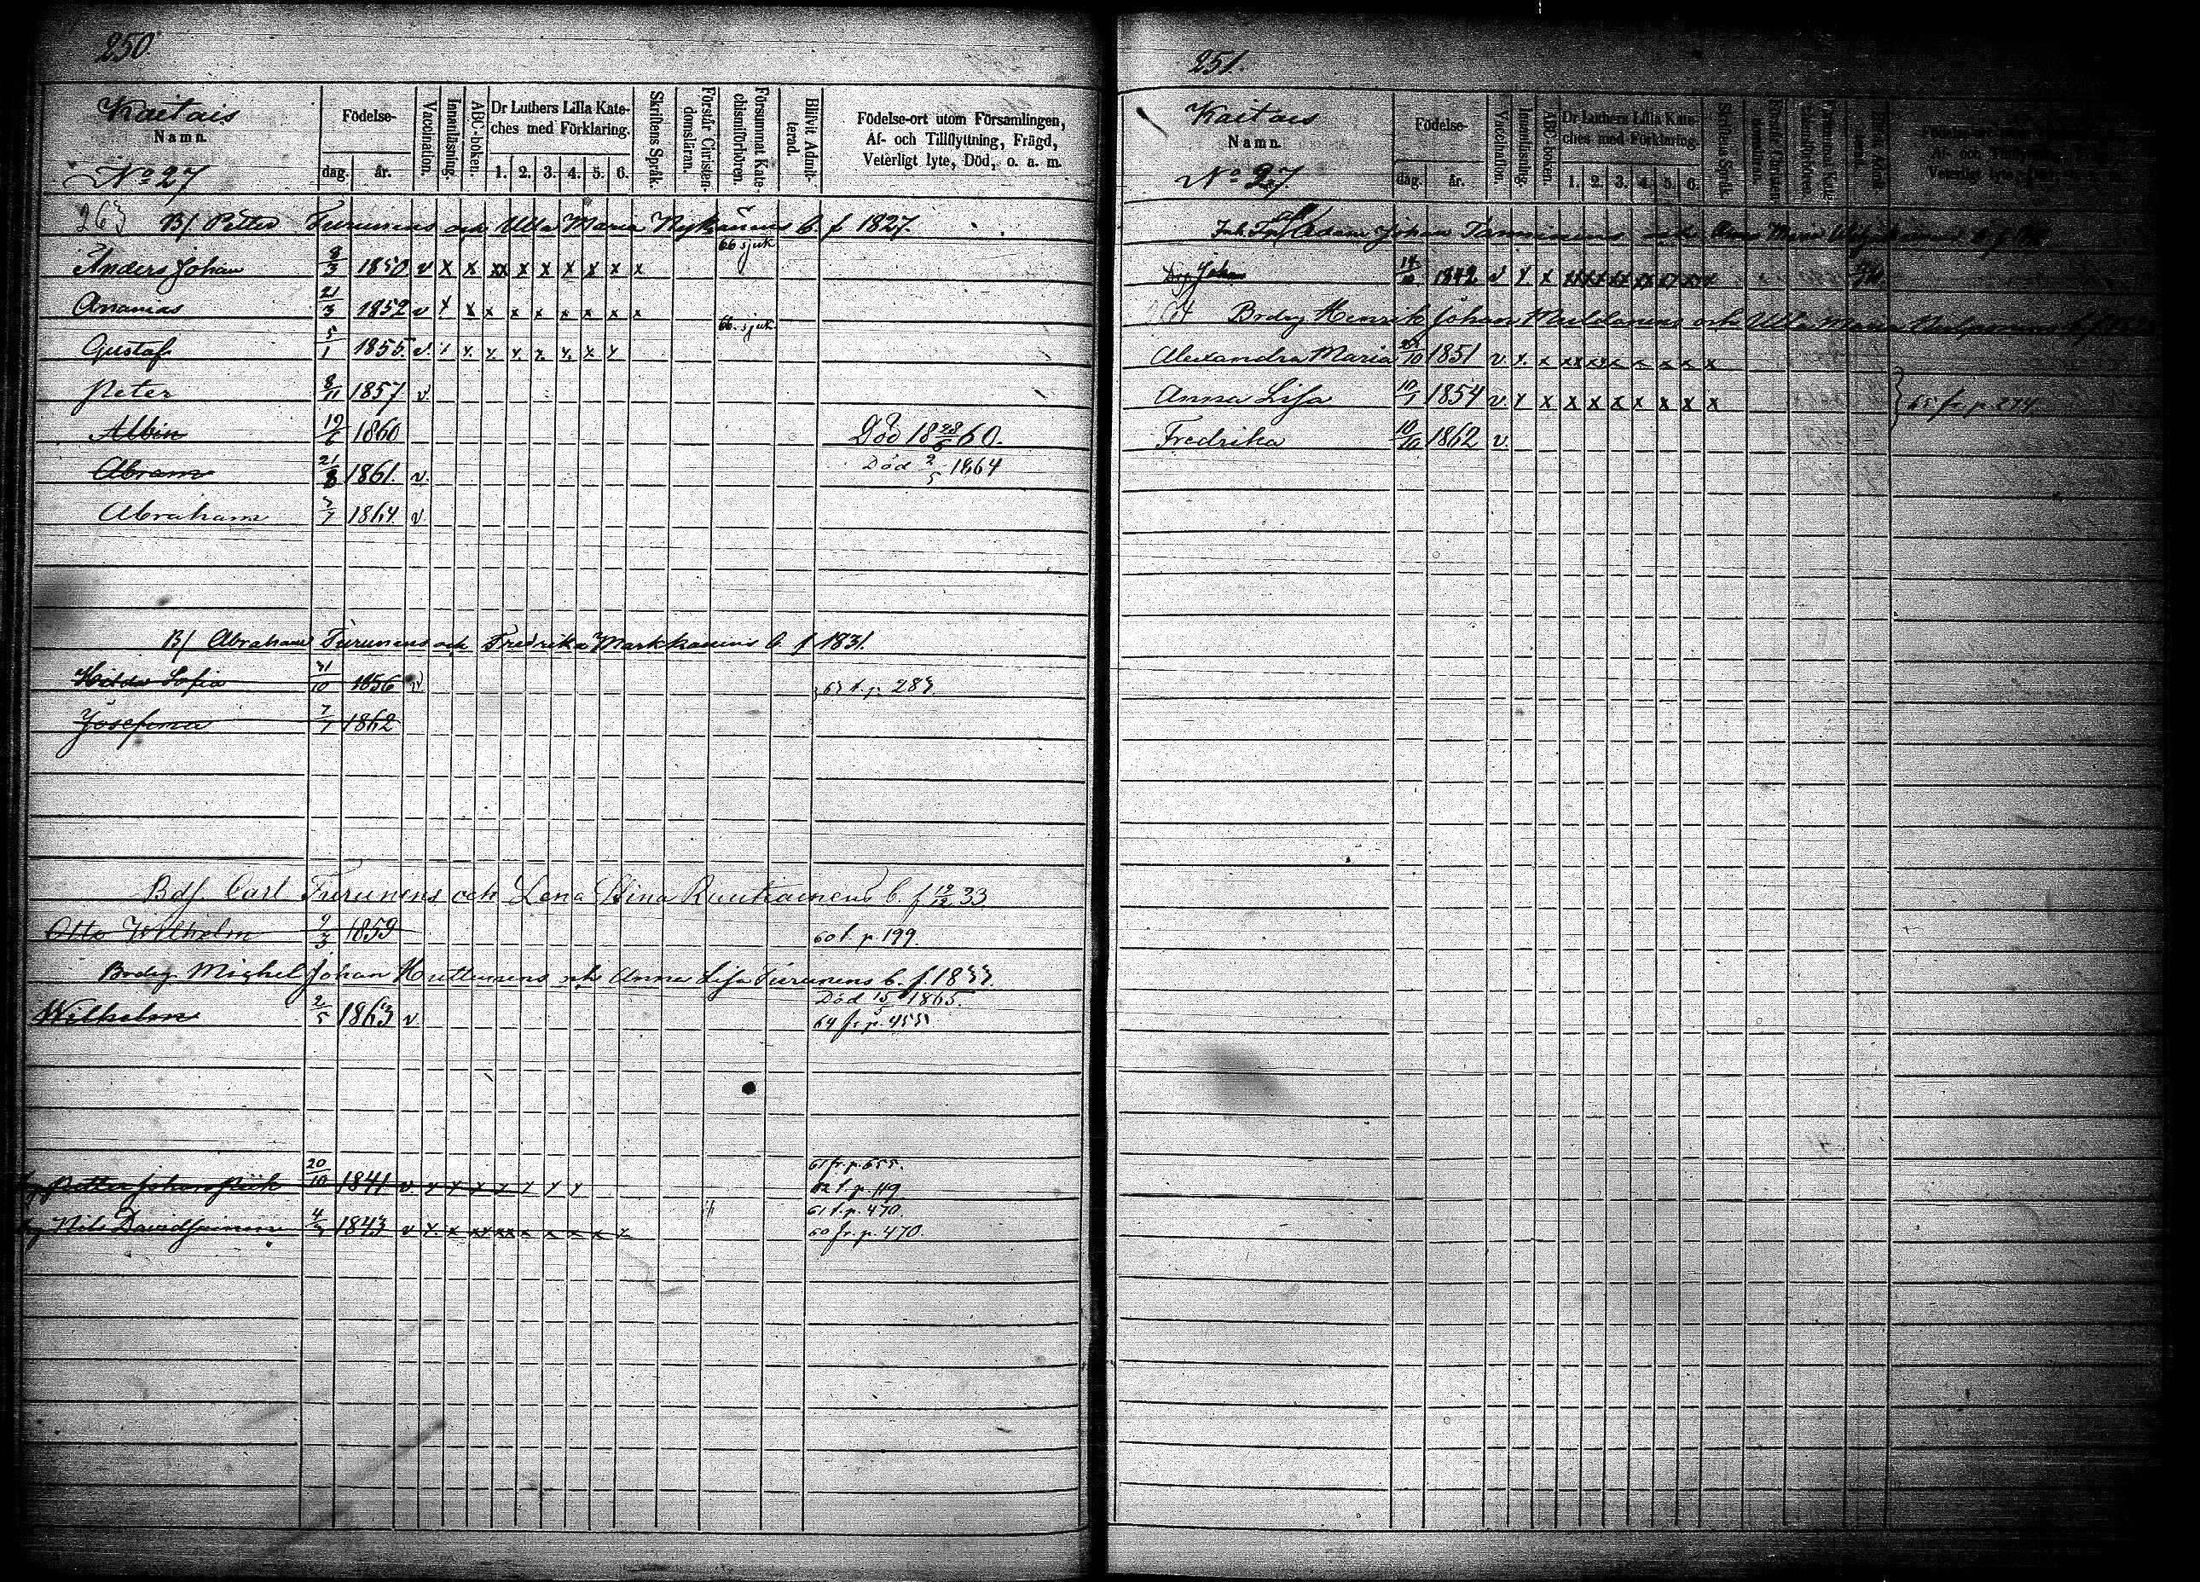 250
Kaitais
Namn.
No 27
Födelse-
dag. år.
Vaccination.
Innanläsning.
ABC-boken.
Dr Luthers Lilla Kate-
ches med Förklaring.
1. 2. 3. 4. 5. 6.
Skriftens Språk.
Förstår Christen-
domsläran.
Försummat Kate-
chismiförhören.
Blifvit Admit-
terad.
Födelse-ort utom Församlingen,
Af- och Tillflyttning, Frägd,
Veterligt lyte, Död, o. a. m.
263 B/ Petter Turunens och Ulla Maria Nykänens b. f 1827.
66 sjuk
Anders Johan 8/3 1850 v x x xx x x x x x x
Ananias 21/3 1852 v x x x x x x x x x
66. sjuk
Gustaf 5/1 1855 v x x x x x x x x
Peter 8/11 1857 v
Albin 19/6 1860 Död 18 28/6 60.
Abram 21/8 1861. v Död 2/5 1864
Abraham 3/7 1864 v
B/ Abraham Turunens och Fredrika Markkanens b f 1831.
Hilda Sofia 31/10 1856 v 63 t. p. 283
Josefina 7/1 1862
Bdf. Carl Turunens och Lena Stina Ruutiainens b. f 19/12 33
Otto Wilhelm 9/3 1859 60 t. p. 199.
Brodrg Mickel Johan Huttunens och Anna Lisa Turunens b. f. 1833.
Död 15/5 1865.
Wilhelm 2/5 1863 v 64 fr. p. 455
61 fr. p. 655.
Petter Johan Piik 20/10 1841 v x x x x x x x 62 t. p. 119
61 t. p. 470.
Nils David 4 1843 v x x xx xx x x x x x 60 fr. p. 470.
251.
Kaitais
Namn.
No 27.
Födelse-
dag. år.
Vaccination.
Innanläsning.
ABC-boken.
Dr Luthers Lilla Kate-
ches med Förklaring.
1. 2. 3. 4. 5. 6.
Skriftens Språk.
Af- och
Veterligt lyte,
Adam Johan Tanninens och Anna Maria
Johan 1842 v x x xx xx xx xx xx xx
264 Brodrg Henrik Johan och Ulla Maria
Alexandra Maria 10 1851 v x. x xx xx x x x x x
Anna Lisa 10/1 1854 v x x x x x x x x x 65 fr. p. 274.
Fredrika 10/10 1862 v